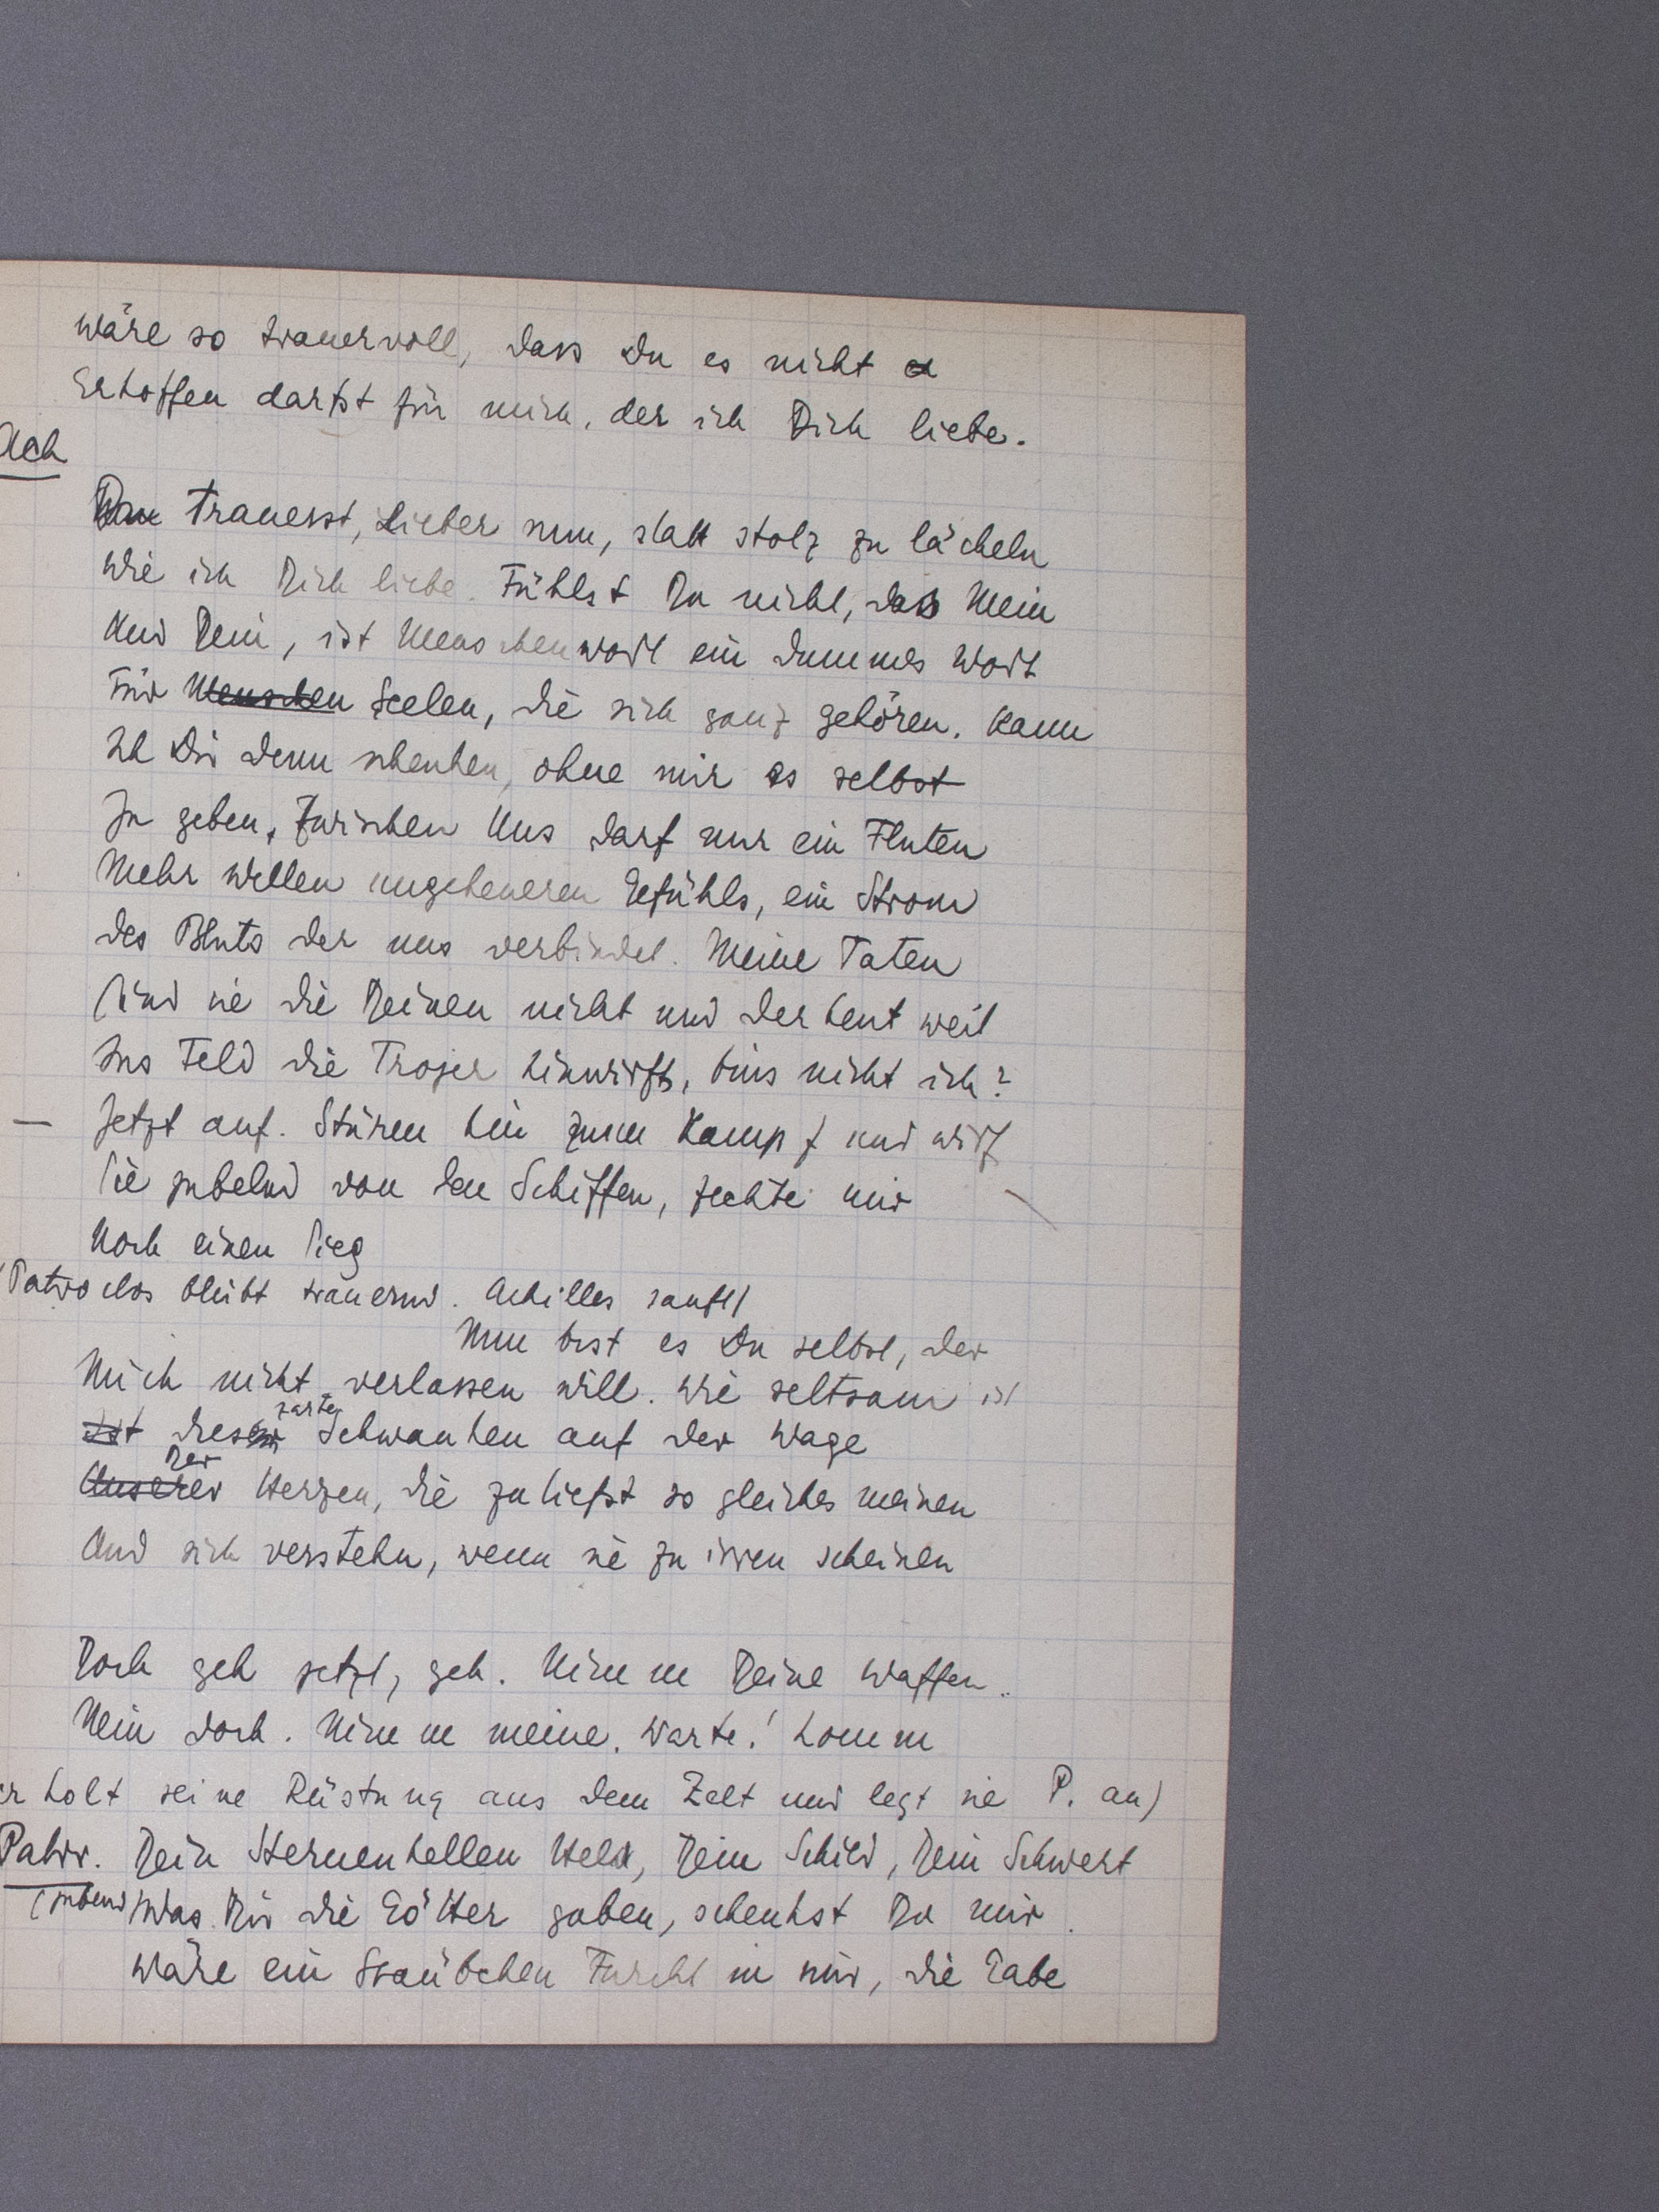 wäre so trauervoll, dass Du es nicht
Erhoffen darfst für mich, der ich Dich liebe.
Ach
Du Trauerst, Lieber nun, statt stolz zu lächeln
Wie ich Dich liebe. Fühlst Du nicht, dass Mein
Und Dein, ist Menschenwort ein dummes Wort
Für Menschen Seelen, die sich ganz gehören. Kann
Ich Dir denn schenken, ohne mir es selbst
Zu geben. Zwischen Uns darf nur ein Fluten
Mehr wellen ungeheueren Gefühls, ein Strom
des Bluts der uns verbindet. Meine Taten
Sind sie die Deinen nicht und der heut weit
Ins Feld die Trojer hinwirft, bins nicht ich?
— Jetzt auf. Stürm hin zum Kampf und wirf
Sie jubelnd von den Schiffen, fechte mir
Noch einen Sieg
(Patroclos bleibt trauernd. Achilles sanft)
Nun bist es Du selbst, der
Mich nicht verlassen will. Wie seltsam ist
zarte
Ist dieser Schwanken auf der Wage
Der
Unserer Herzen, die zutiefst so gleiches meinen
Und sich verstehn, wenn sie zu irren scheinen
Doch geh jetzt, geh. Nimm Deine Waffen.
Nein doch. Nimm meine. Warte! komm
er holt seine Rüstung aus dem Zelt und legt sie P. an)
Patr. Dein Sternenhellen Held, Dein Schild, Dein Schwert
(jubelnd) Was Dir die Götter gaben, schenkst Du mir.
Wäre ein Stäubchen Furcht in mir, die Gabe